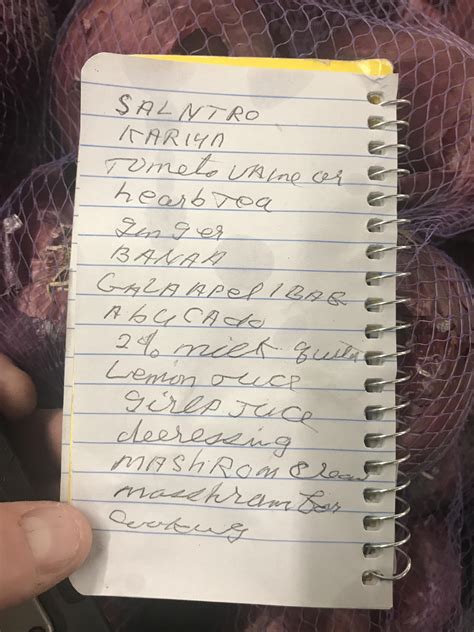 SALNTRO
KARIYA
TOmeto VAine or
hearbTea
ginger
BANAA
GALA APel 1 BAG
AbUCAdo
2% milk
Lemon Juce
Juce
deeressing
MASHROM
mosshram for
cooking